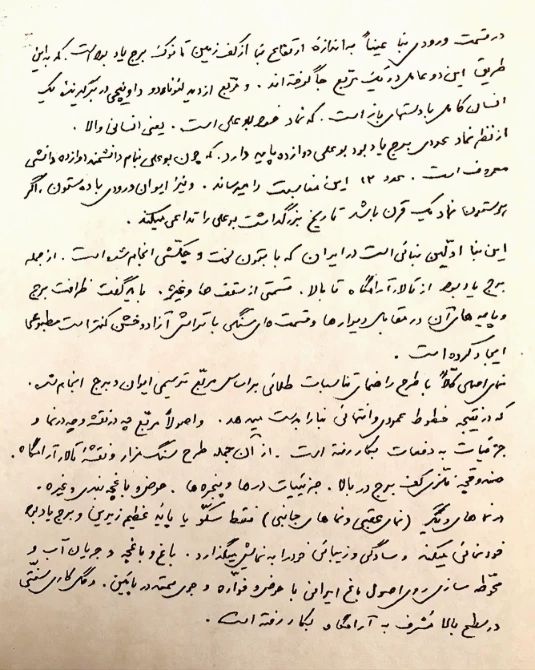 در قسمت ورودی بنا عیناً به اندازهٔ ارتفاع بنا از کف زمین تا نوک برج یاد بود است. که به این
طریق این دو عامل در یک مربع جا گرفته‌اند. و مربع از دید لئوناردو داوینچی در بر گیرنده یک
انسان کامل با دستهای باز است. که نماد خود بوعلی است. یعنی انسانی والا.
از نظر نماد عمودی برج یاد بود بوعلی دوازده پایه دارد. که چون بوعلی بنام دانشمند دوازده دانشی
معروف است. عدد ۱۲ این مناسبت را میرساند. و نیز ایوان ورودی با ده ستون. اگر
هر ستون نماد یک قرن باشد تاریخ بزرگداشت بوعلی را تداعی میکند.
این بنا اولین بنائی است در ایران که با بتون لخت و چکشی انجام شده است. از جمله
برج یاد بود از تالار آرامگاه تا بالا. قسمتی از سقف ها و غیره. باید گفت ظرافت برج
و پایه های آن در مقابل دیوارها و قسمت های سنگی با تراش آزاد و خشن کنتراست مطبوعی
ایجاد کرده است.
نمای اصلی کلاً با طرح راهنمای تناسبات طلائی بر اساس مربع ترسیمی ایوان و برج انجام شد.
که در نتیجه خطوط عمودی و انتهائی بنا را بدست میدهد. و اصولاً مربع چه در نقشه و چه در نما و
جزئیات به دفعات بکار رفته است. از آن جمله طرح سنگ مزار و نقشهٔ تالار آرامگاه.
صندوقچه فلزی کف برج در بالا. جزئیات درها و پنجره ها. حوض و باغچه بندی و غیره.
در نماهای دیگر (نمای عقبی و نماهای جانبی) فقط سکو یا پایهٔ عظیم زیرین و برج یاد بود
خودنمائی میکند و سادگی و زیبائی خود را به نمایش میگذارد. باغ و باغچه و جریان آب و
محوطه سازی روی اصول باغ ایرانی با حوض و فواره و جوی ممتد در پائین. و گل کاری سنتی
در سطح بالا مشرف به آرامگاه بکار رفته است.